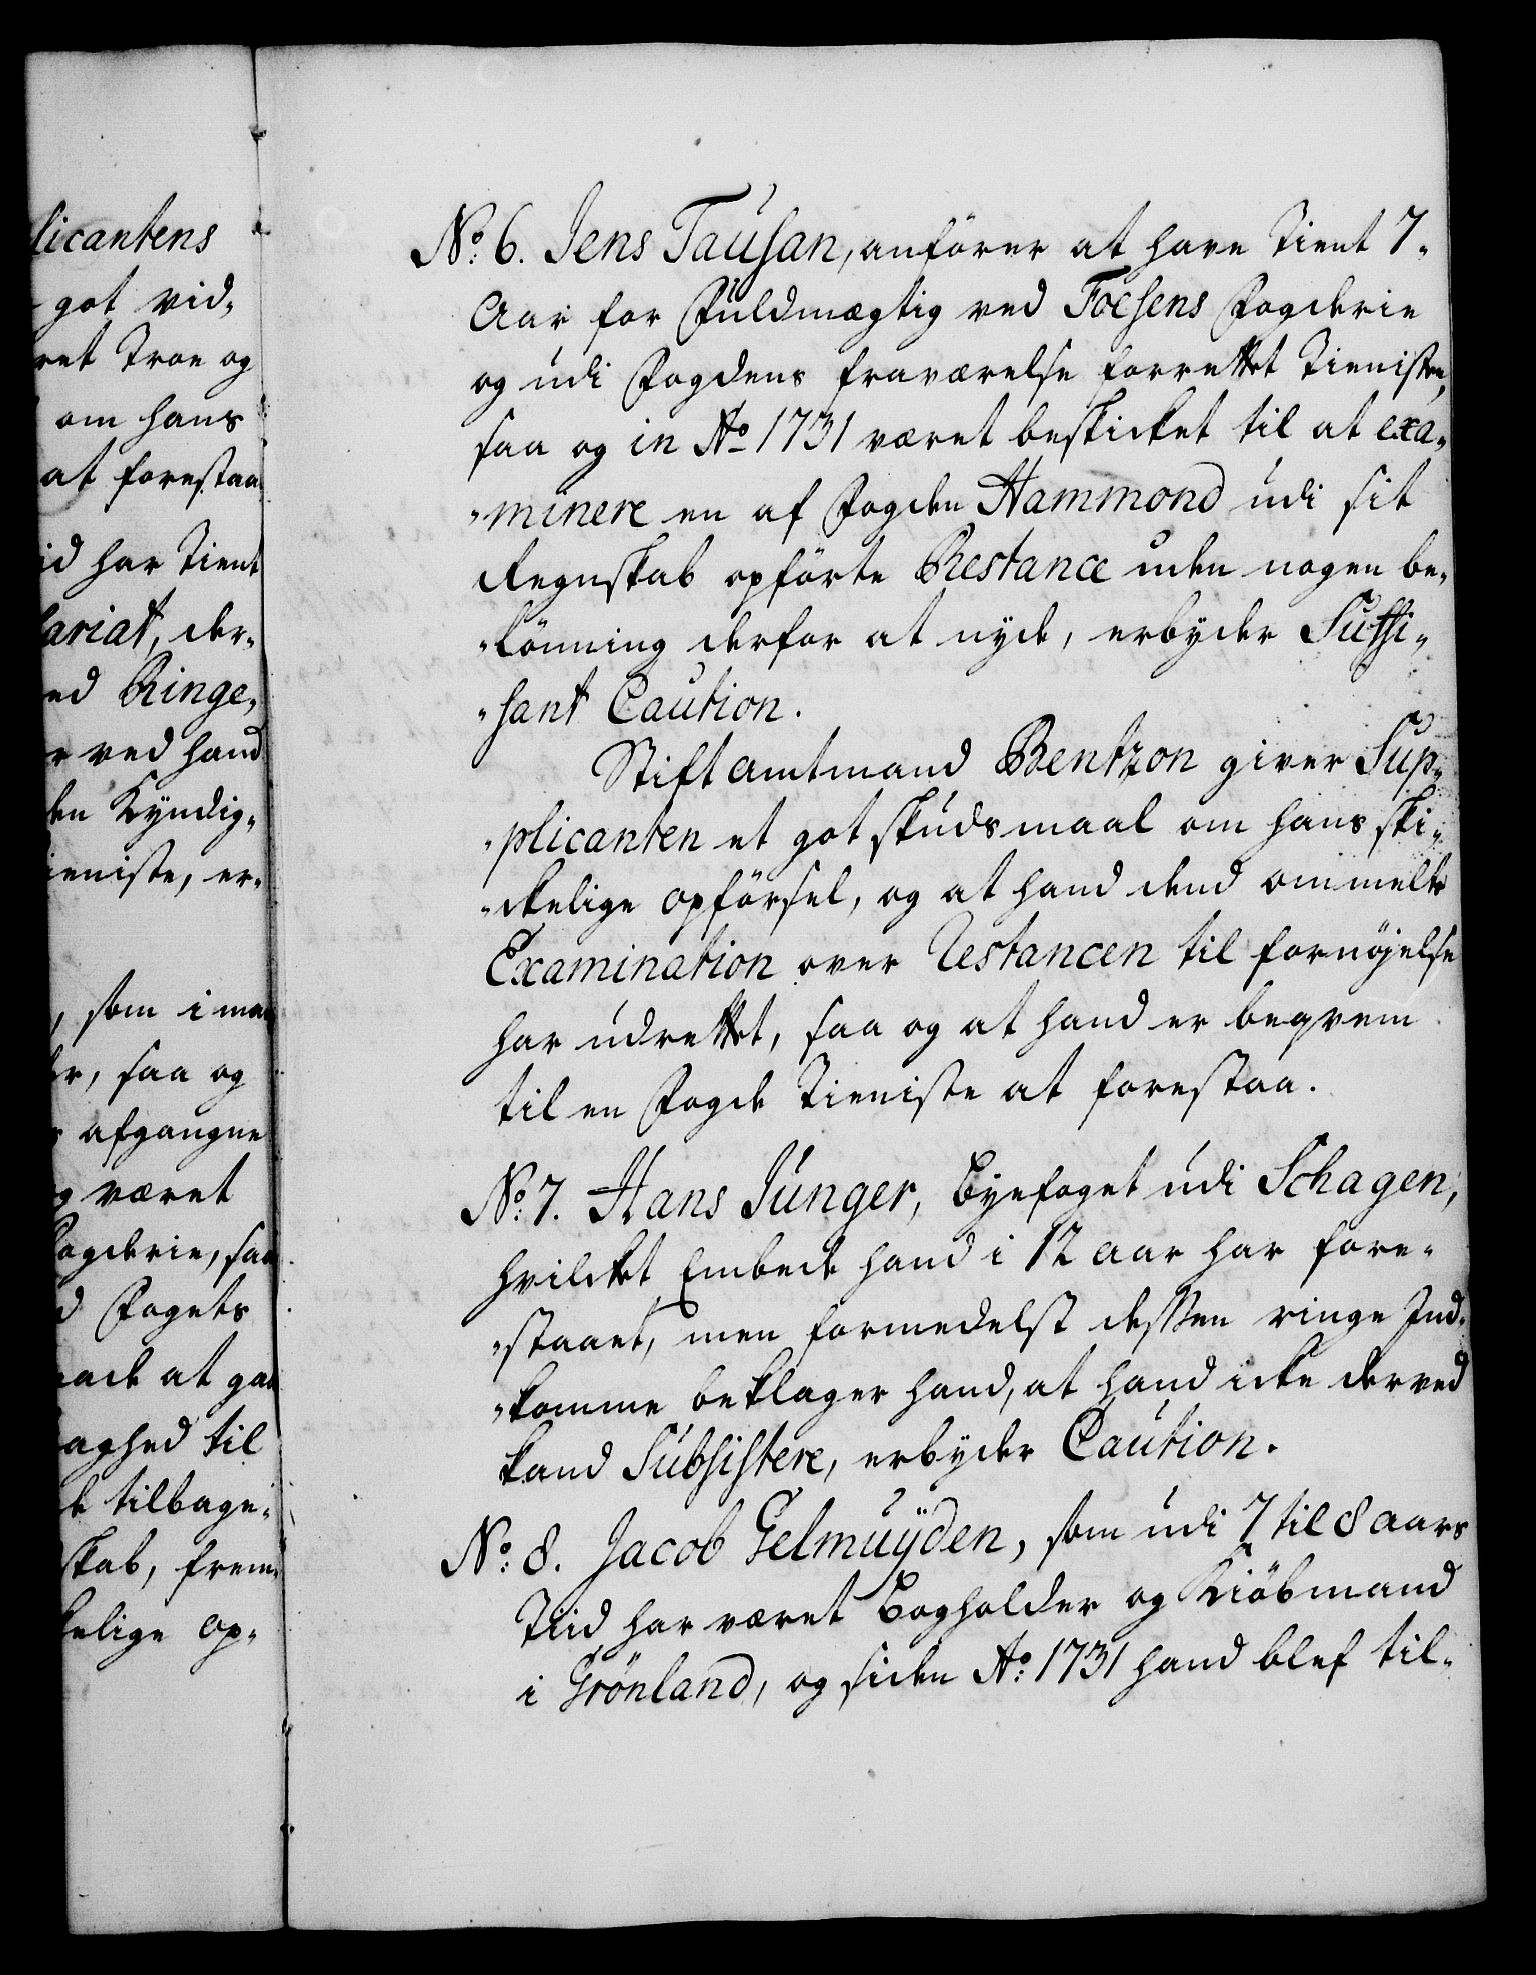 licantens
got vid-
ret Troe og
om hans
at forestaa
id har tient
ariat, der-
ed Ringe-
r ved haand
den Kyndig-
ieniste, er-
, som i man
dr, saa og
s afgangne
og været
Fogderie, saa
d Fogets
ade at gaa
aghed til
de tilbage-
skab, frem-
kelige op-
No: 6. Jens Tausan, anförer at have tient 7-
Aar for Fuldmægtig ved Foesens Fogderie
og udi Fogdens fraværelse forrettet Tienisten,
saa og in Ao 1731 været beskicket til at exa-
-minere en af Fogden Hammond udi sit
Regnskab opförte Restance uden nogen be-
-lönning derfor at nyde, erbyder Suffi-
-sant Caution.
Stiftamtmand Bentzon giver Sup-
-plicanten et got skudsmaal om hans ski-
-ckelige opförsel, og at hand dend ommelte
Examination over Restancen til fornöjelse
har udrettet, saa og at hand er beqvem
til en Fogde Tieniste at forestaa.
No: 7. Hans Junger, Byefoget udi Schagen,
hvilcket Embede hand i 12 aar har fore-
-staaet, men formedelst dessen ringe Ind-
-komme beklager hand, at hand icke derved
kand Subsistere, erbyder Caution.
No: 8. Jacob Gelmuyden, som udi 7 til 8 aars
Tiid har været Bogholder og Kiöbmand
i Grönland, og siden Ao: 1731 hand blef til-